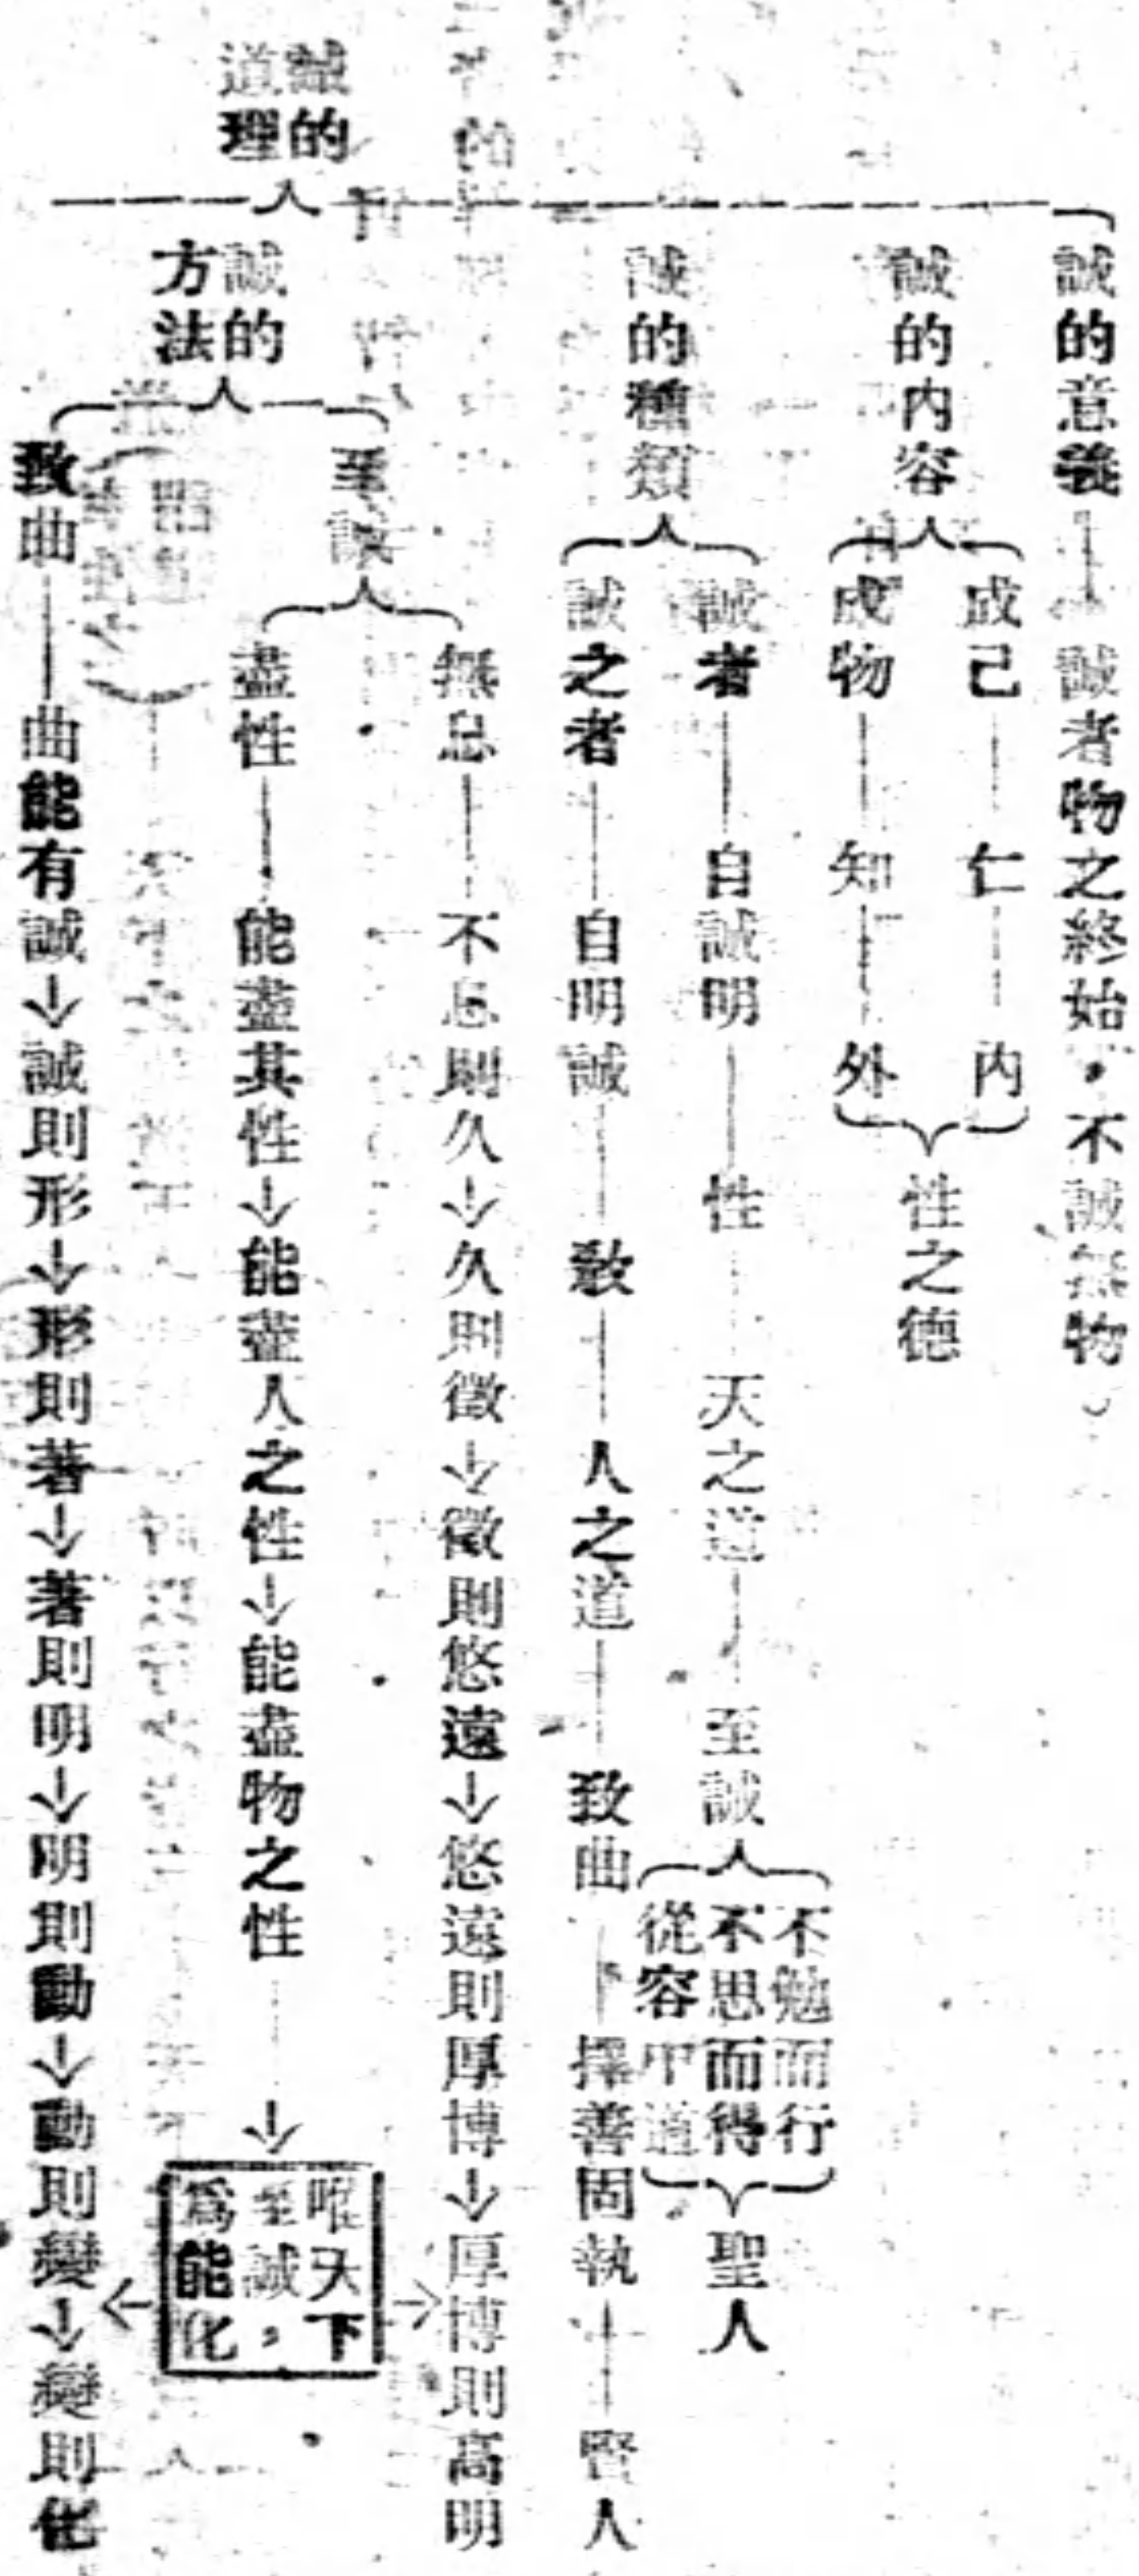 誠的
道理
誠的意義
誠者物之終始，不誠無物。
誠的內容
成己
仁
內
成物
知
外
性之德
誠的種類
誠者
自誠明
性
天之道
至誠
不勉而行
不思而得
從容中道
聖人
誠之者
自明誠
教
人之道
致曲
擇善固執
賢人
誠的
方法
至誠
無息
不息則久→久則徵→徵則悠遠→悠遠則厚博→厚博則高明
盡性
能盡其性→能盡人之性→能盡物之性
→
唯天下
至誠，
為能化
致曲
曲能有誠→誠則形→形則著→著則明→明則動→動則變→變則化